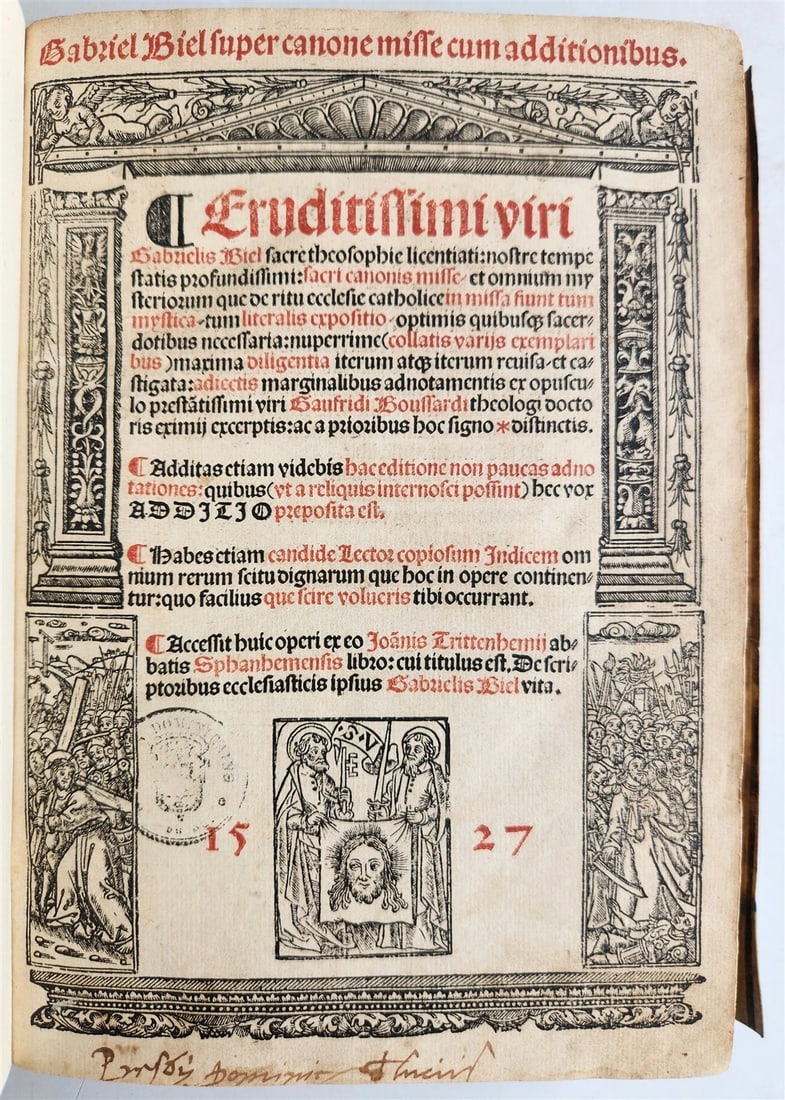 Gabriel Biel super canone misse cum additionibus.
¶ Eruditissimi viri
Gabrielis Biel sacre theosophie licentiati: nostre tempe
statis profundissimi: sacri canonis misse et omnium my
steriorum que de ritu ecclesie catholice in missa fiunt tum
mystica tum literalis expositio optimis quibusqȝ sacer⸗
dotibus necessaria: nuperrime (collatis varijs exemplari
bus) maxima diligentia iterum atqȝ iterum reuisa et ca⸗
stigata: adiectis marginalibus adnotamentis ex opuscu⸗
lo prestātissimi viri Gaufridi Boussardi theologi docto
ris eximij excerptis: ac a prioribus hoc signo * distinctis.
¶ Additas etiam videbis hac editione non paucas adno
tationes: quibus (vt a reliquis internosci possint) hec vox
ADDITIO preposita est.
¶ Habes etiam candide Lector copiosum Indicem om
nium rerum scitu dignarum que hoc in opere continen⸗
tur: quo facilius que scire volueris tibi occurrant.
¶ Accessit huic operi ex eo Joānis Trittenhemij ab⸗
batis Sphanhemensis libro: cui titulus est. De scri⸗
ptoribus ecclesiasticis ipsius Gabrielis Biel vita.
S V E
15 27